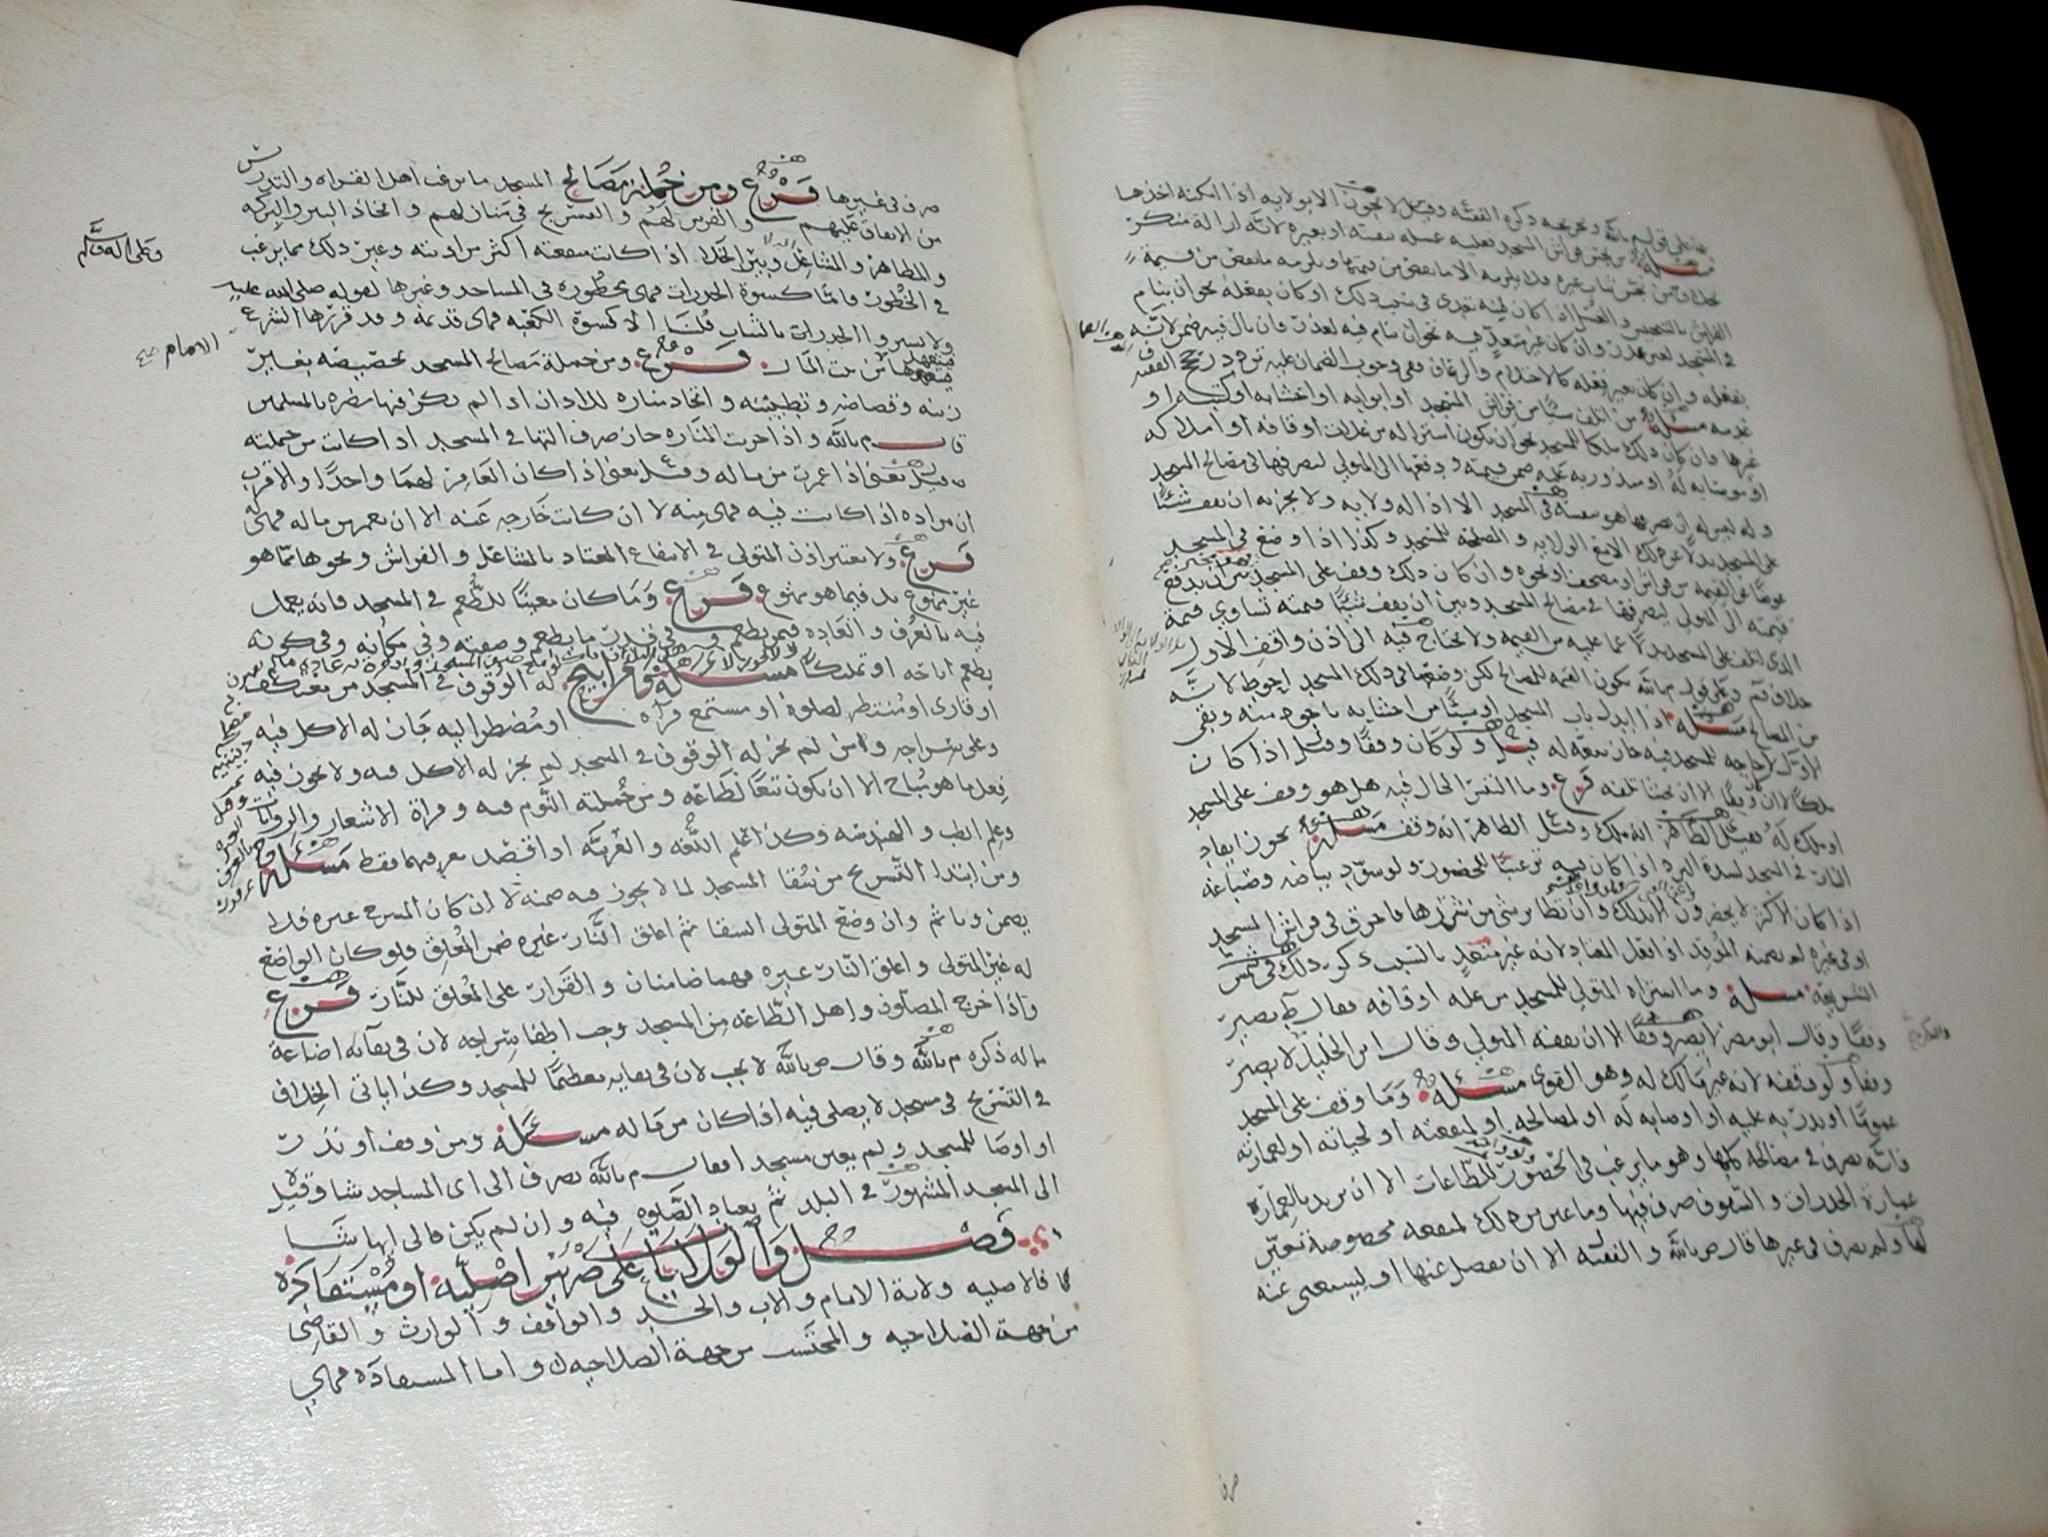 على قول م بالله وتخريجه ذكره الفقيه وقيل لا يجوز الا بولايه اذا امكنه اخذها
مسئلة من نجس فراش المسجد فعليه غسله بنفسه او بغيره لانه ازالة منكر
بخلاف من نجس ثياب غيره فلا يلزمه الا ما نقص من قيمتها ويلزمه ما نقص من قيمة
الفراش بالتنجيس والغسل اذا كان منه تعدي في سبب ذلك او كان بفعله نحو ان ينام
في المسجد لغير عذر وان كان غير متعدي فيه نحو ان ينام فيه لعذر فان بال فيه ضمن لانه
بفعله وان كان بغير فعله كالاحتلام والرعاف ففي وجوب الضمان عليه تردد رجح الفقيه
عدمه مسئلة من اتلف شيئا من فراش المسجد او ابوابه او اخشابه او كتبه او
غيرها فان كان ذلك ملكا للمسجد نحو ان يكون اشتراله من غلات اوقافه او املاكه
او موصابه له او منذور به عليه ضمن قيمته ودفعها الى المتولي ليصرفها في مصالح المسجد
وله ان يصرفها هو بنفسه في المسجد الا اذا له ولايه ولا يجزيه ان يقف شيئا
على المسجد بدلا عن ذلك الا مع الولايه والمصلحه للمسجد وكذا اذا وضع في المسجد
عوضا عن القيمه من فراش او مصحف او نحوه وان كان ذلك وقف على المسجد خير ان يدفع
قيمته الى المتولي ليصرفها في مصالح المسجد وبين ان يقف شيئا قيمته تساوي قيمة
الذي اتلف على المسجد بدلا عما عليه من القيمه ولا يحتاج فيه الى اذن واقف الاول
خلاف وعلى قول م بالله تكون القيمه للمصالح لكن وضعها في ذلك المسجد احوط لانه
من المصالح مسئلة اذا ابدل باب المسجد او شيئا من اخشابه باجود منه وبقي
الاول لا حاجه للمسجد فيه جاز بيعه له قيل ولو كان وقفا وقيل اذا كان
ملكا لا ان وقفا الا ان يخشا تلفه فرع وما التبس الحال فيه هل هو وقف على المسجد
او ملك له فقيل الظاهر انه ملك وقيل الظاهر انه وقف مسئلة يجوز ايقاد
النار في المسجد لشدة البرد اذا كان فيه ترغيبا للحضور ولو سود بياضه وصباغه
اذا كان الاكثر لا يحضرون الا بذلك وان تطاير شي من شررها فاحرق في فراش المسجد
او في غيره لم يضمنه الموقد اذا فعل المعتاد لانه غير متعد بالسبب ذكر ذلك في شمس
الشريعه مسئلة وما اشتراه المتولي للمسجد من غلة اوقافه فقال ط يصير
وقفا وقال ابو مضر لا يصير وقفا الا ان يقفه المتولي وقال ابن الخليل لا يصير
وقفا ولو وقفه لانه غير مالك له وهو القوي مسئلة وما وقف على المسجد
عموما او نذر به عليه او اوصا به له او لمصالحه او لمنفعته او لحياته او لعمارته
فانه يصرف في مصالحه كلها وهو ما يرغب في الحضور للطاعات الا ان يريد بالعمارة
عمارة الجدرات والسقوف صرف فيها وما عين من ذلك لمنفعه مخصوصة تعين
لها ولم يصرف في غيرها قال ص بالله والفقيه الا ان يفضل عنها او يستغنى عنه
صرف
صرف في غيرها فرع ومن جملة مصالح المسجد ما يرغب اهل القراه والتدريس
من الانفاق عليهم والفرش لهم والتسريج في منازلهم واتخاذ البير والبركه
والمطاهر والمشاعل وبير الخلا اذا كانت منفعته اكثر من اذيته وغير ذلك مما يرغب
في الحضور واما كسوة الجدرات فهي محظوره في المساجد وغيرها لقوله صلى الله عليه
وعلى اله وسلم
ولا تستروا الجدرات بالثياب قلنا الا كسوة الكعبه فهي قديمة وقد قررها الشرع
الامام
من بيت المال فرع ومن جملة مصالح المسجد تجصيصه بغير
زينه وقصاصه وتطيينه واتخاذ مناره للاذان اذا لم يكن فيها مضره بالمسلمين
قال م بالله واذا خربت المناره جاز صرف التها في المسجد اذا كانت من جملته
قيل يعني اذا عمرت من ماله وقيل يعني اذا كان العامر لهما واحدا والاقرب
ان مراده اذا كانت فيه فهي منه لا ان كانت خارجه عنه الا ان تعمر من ماله فهي له
فرع ولا يعتبر اذن المتولي في الانتفاع المعتاد بالمشاعل والفراش ونحوها مما هو
غير ممنوع بل فيما هو ممنوع فرع وما كان معينا للطعم في المسجد فانه يعمل
فيه بالعرف والعاده فيمن يطعم وفي قدر ما يطعم وصفته وفي مكانه وفي كونه
يطعم اباحه او تمليكا مسئلة ومن ابيح له الوقوف في المسجد من معتكف
او قاري او منتظر لصلوة او مستمع قرآة او مضطر اليه جاز له الاكل فيه
وعلى سراجه ومن لم يجز له الوقوف في المسجد لم يجز له الاكل فيه ولا يجوز فيه
فعل ما هو مباح الا ان يكون تبعا لطاعه ومن جملته النوم فيه وقراة الاشعار والروايات
وعلم الطب والهندسه وكذا علم اللغه والعربيه اذا قصد معرفتهما فقط مسئلة
ومن ابتدا التسريج من سقا المسجد لما لا يجوز فيه ضمنه لا ان كان المسرج غيره فلا
يضمن وياثم وان وضع المتولي السقا ثم اعلق النار غيره ضمن المعلق ولو كان الواضع
له غير المتولي واعلق النار غيره فهما ضامنان والقرار على المعلق للنار فرع
واذا خرج المصلون واهل الطاعه من المسجد وجب اطفا سراجه لان في بقائه اضاعة
ماله ذكره م بالله وقال ص بالله لا يجب لان في بقايه تعظيما للمسجد وكذا ياتي الخلاف
في التسريج في مسجد لا يصلى فيه اذا كان من ماله مسئلة ومن وقف او نذر
او اوصا للمسجد ولم يعين مسجدا فقال م بالله يصرف الى اي المساجد شا وقيل
الى المسجد المشهور في البلد ثم يعاد الصلوه فيه وان لم يكن فالى ايها شا
فصل والولايات على ضربين اصليه او مستفاده
فالاصليه ولاية الامام والاب والجد والواقف والوارث والقاضي
من جهة الصلاحيه والمحتسب من جهة الصلاحيه واما المستفاده فهي